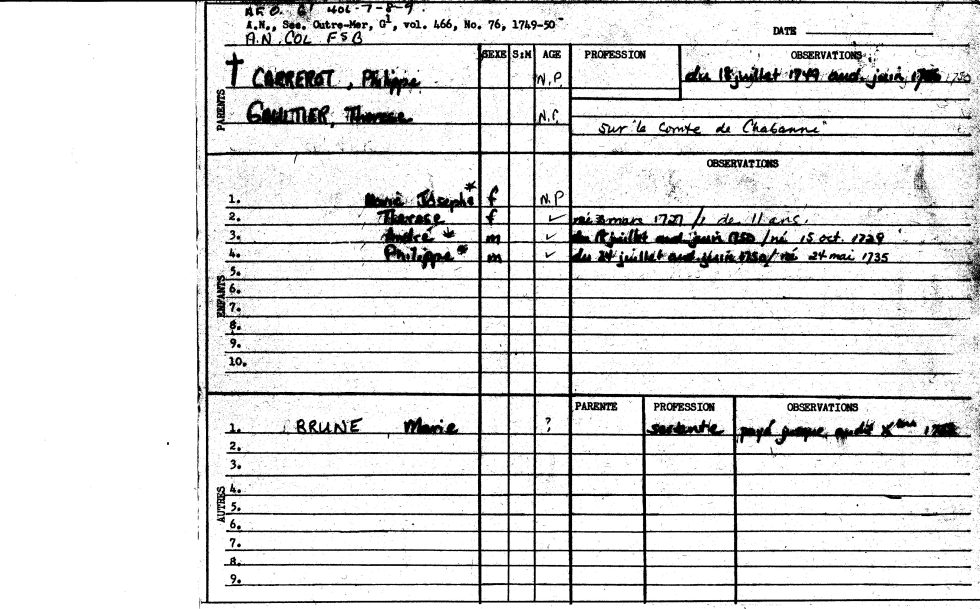 AFO. G1 406-7-8-9.
A.N., Sec. Outre-Mer, G1, vol. 466, No. 76, 1749-50
A.N. COL F5B
DATE
SEXE S:M AGE PROFESSION OBSERVATIONS
PARENTS
† CARREROT, Philippe N.P. du 18 juillet 1749 aud. juin 1750
GAULTIER, Therese N.P.
sur "le Comte de Chabanne"
ENFANTS
OBSERVATIONS
1. Marie Josephe* f N.P
2. Therese f ✓ née 3 mars 1727 / de 11 ans.
3. André * m ✓ du 18 juillet aud. juin 1750 / né 15 oct. 1729
4. Philippe * m ✓ du 24 juillet aud. juin 1750 / né 24 mai 1735
5.
6.
7.
8.
9.
10.
AUTRES
PARENTE PROFESSION OBSERVATIONS
1. BRUNE Marie ? servante payé jusque
2.
3.
4.
5.
6.
7.
8.
9.